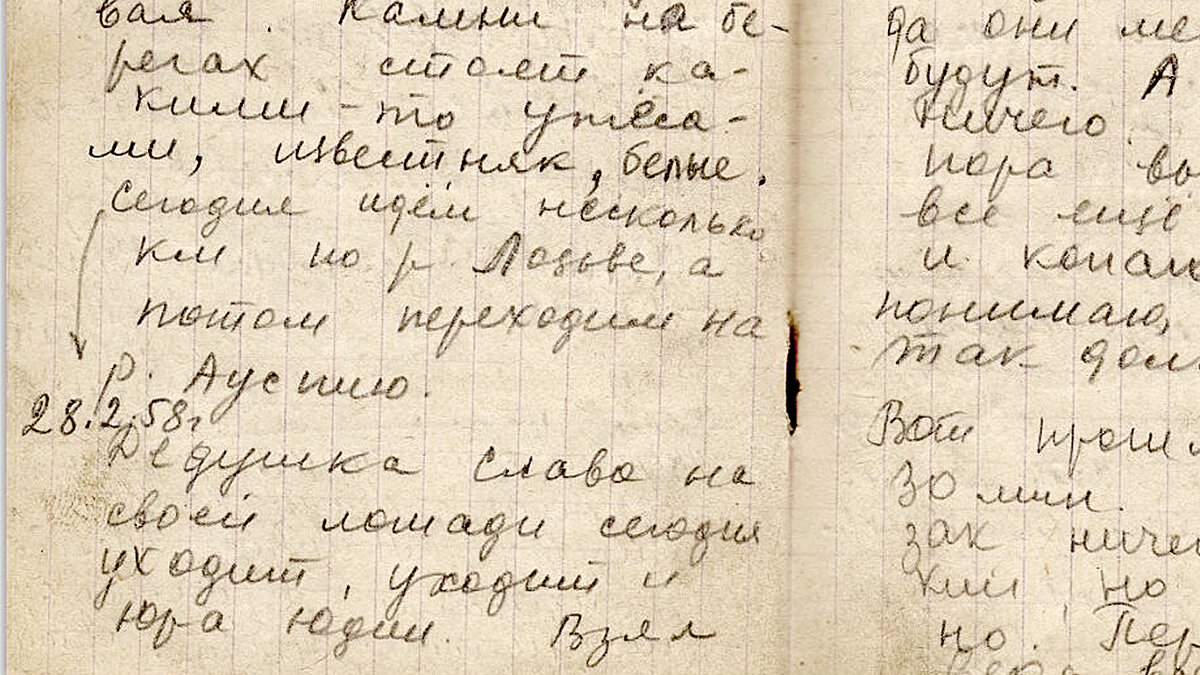 вая. Камни на бе-
регах стоят ка-
кими-то утёса-
ми, известняк, белые.
Сегодня идём несколько
км по р. Лозьве, а
потом переходим на
р. Ауспию.
28.2.58г
Дедушка Слава на
своей лошади сегодня
уходит, уходит и
Юра Юдин. Взял
да они ме
будут. А
ничего
пора вы
все ещё
и копа
понимаю,
так дол
Вот прош
30 мин.
зак ниче
кий, но
но. Пер